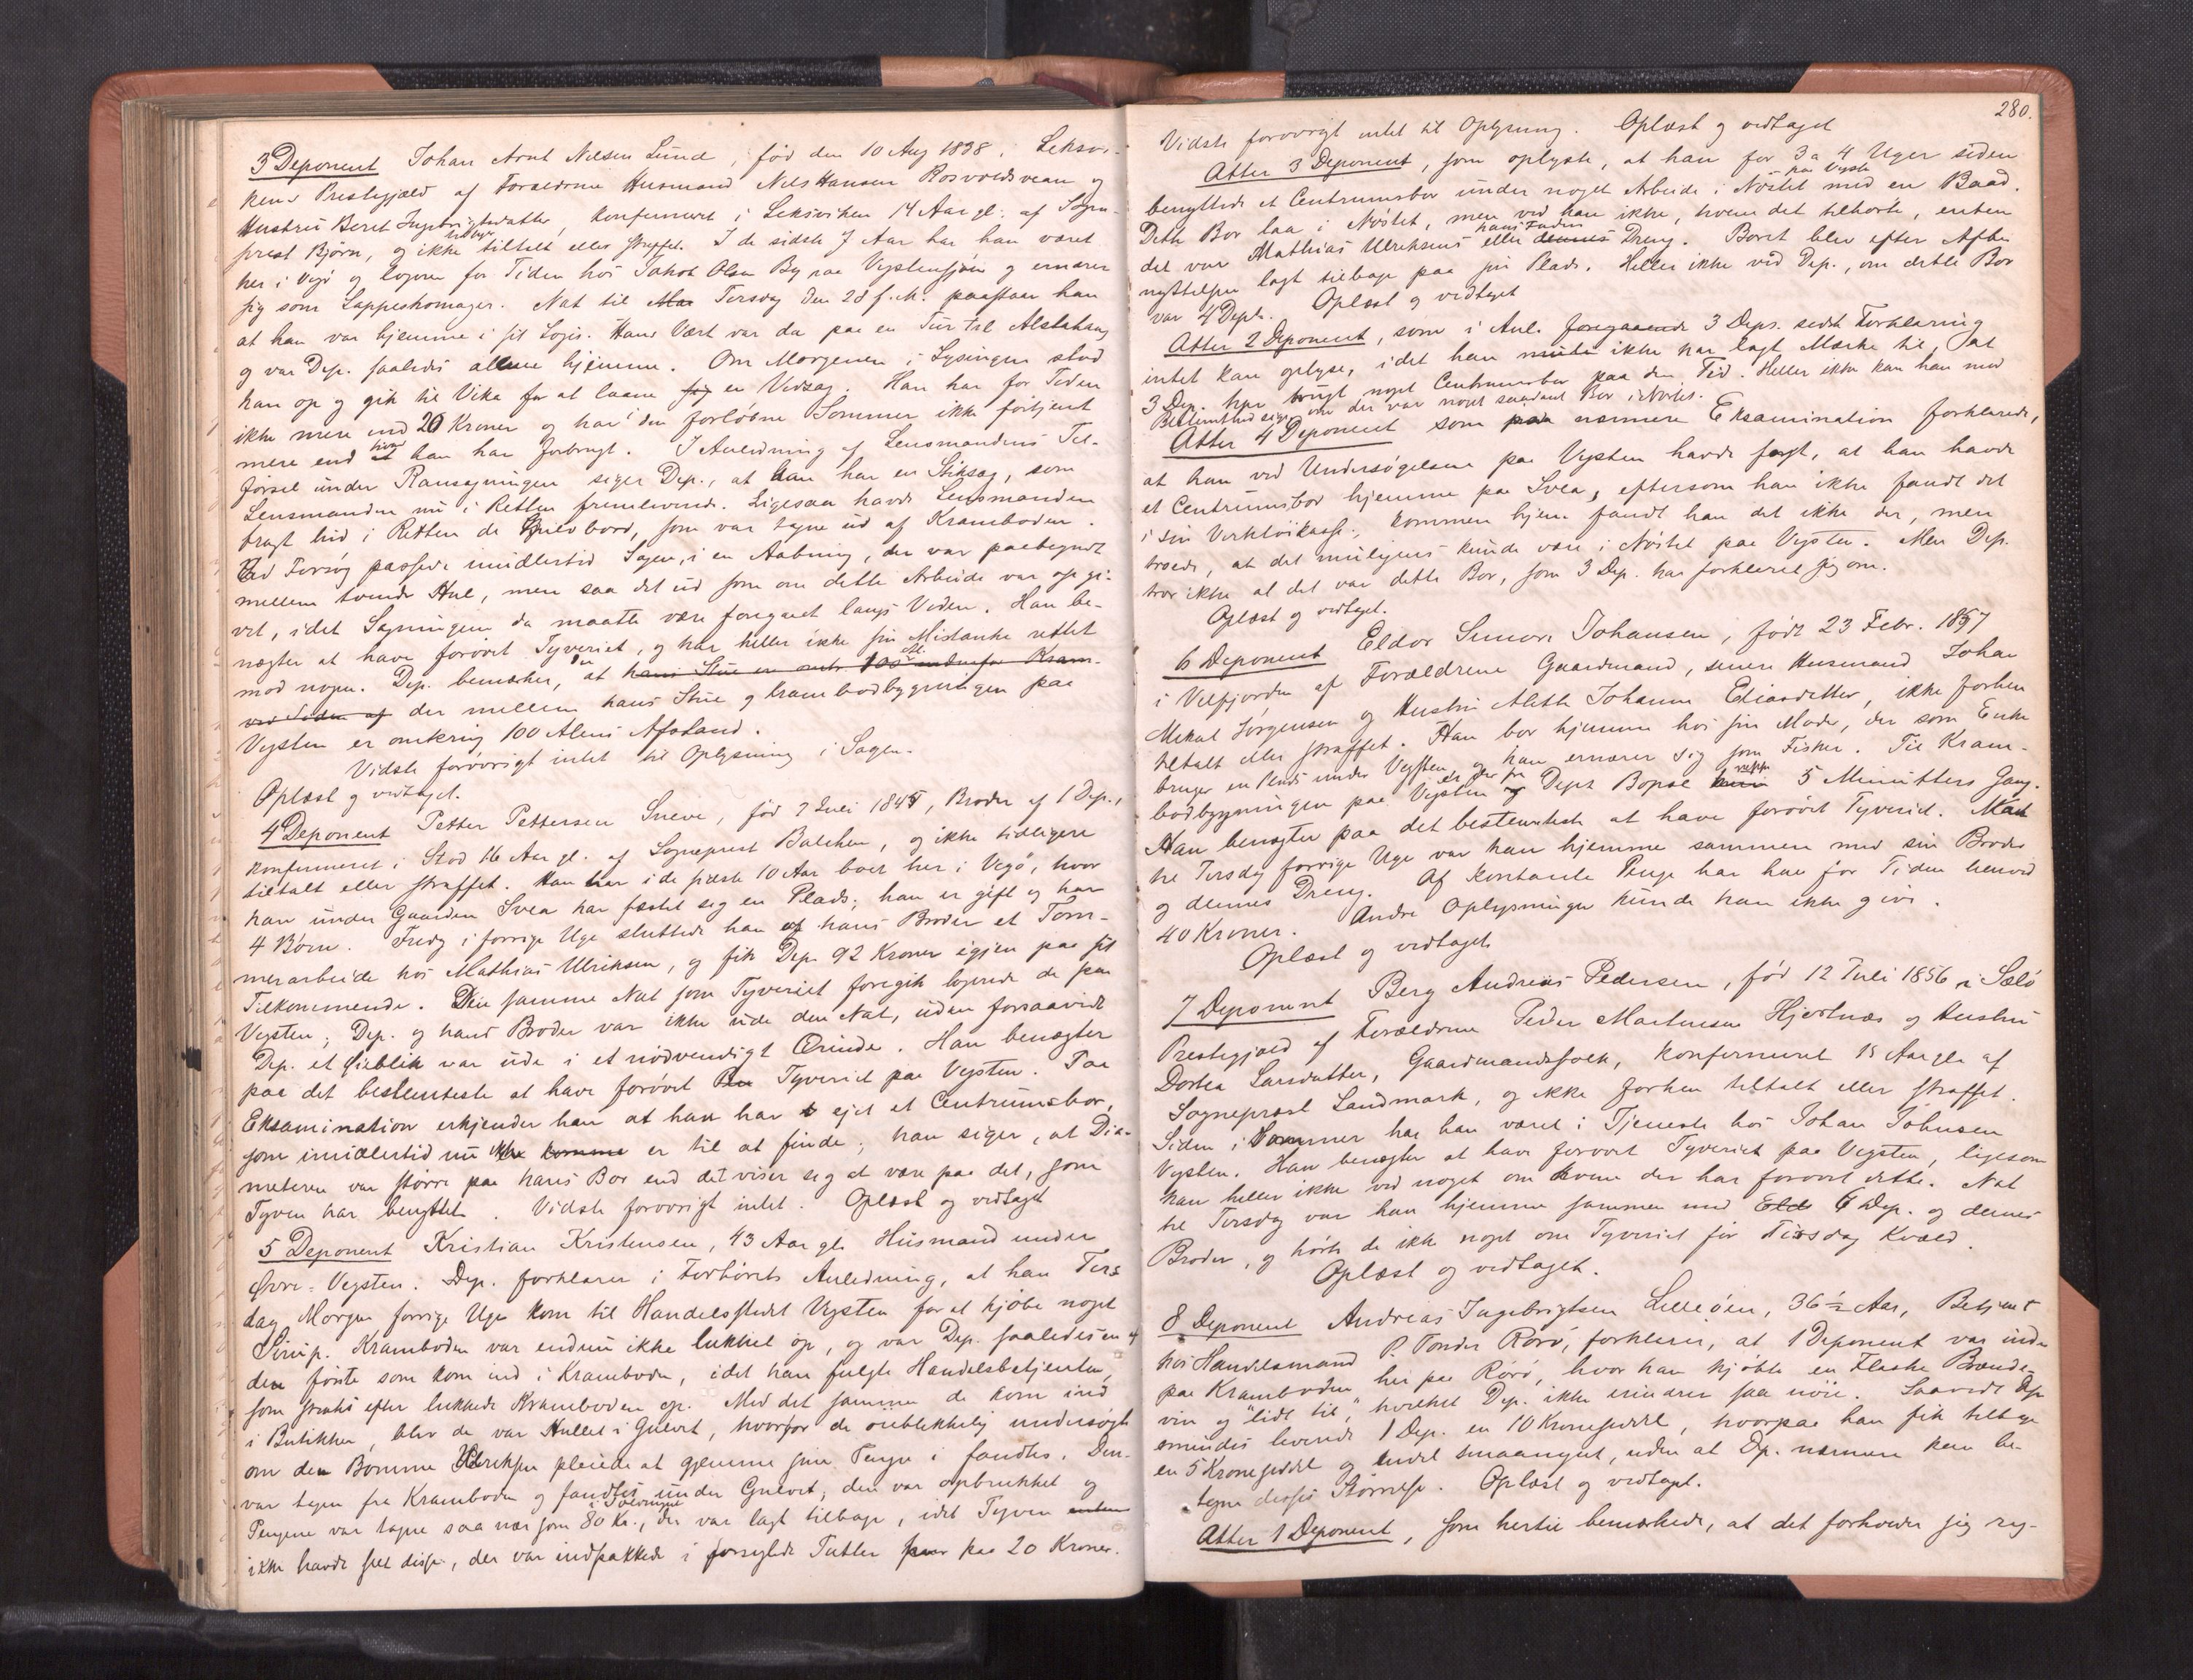 3 Deponent Johan Arnt Nilsen Lund, født den 10 Aug 1838 i Leksvi-
kens Prestegjæld af Forældrene Husmand Nils Hansen Rosvoldsvean og
Hustru Beret Ingebrigtsdatter, konfirmeret i Leksviken 14 Aar gl. af Sogne-
prest Bjørn, og ikke tidligere tiltalt eller straffet. I de sidste 7 Aar har han været
her i Vegø og logerer for Tiden hos Jakob Olsen By paa Vegstensjøen og ernærer
sig som Lappeskomager. Nat til Tirsdag den 28 f. M. paastaar han
at han var hjemme i sit Logis. Hans Vært var da paa en Tur til Alstahaug
og var Dep. saaledes allene hjemme. Om Morgenen i Lysingen stod
han op og gik til Vika for at laane sig en Vedsag. Han har for Tiden
ikke mere end 20 Kroner og har i den forløbne Sommer ikke fortjent
mere end hvad han har forbrugt. I Anledning af Lensmandens Til-
førsel under Ransagningen siger Dep., at han har en Stiksag, som
Lensmanden nu i Retten fremleverede. Ligesaa havde Lensmanden
bragt hid i Retten de Gulvbord, som var tagne ud af Kramboden.
Ved Forsøg passede imidlertid Sagen i en Aabning, der var paabegyndt
mellem tvende Hul, men saa det ud som om dette Arbeide var opgi-
vet, idet Sagningen da maatte være foregaaet langs Veden. Han be-
nægter at have forøvet Tyveriet, og har heller ikke sin Mistanke rettet
mod nogen. Dep. bemærker, at hans Stue er omtr. 100 Al. nedenfor Kram-
ved Siden af der mellem hans Stue og Krambodbygningen paa
Vegsten er omkring 100 Alens Afstand.
Vidste forøvrigt intet til Oplysning i Sagen.
Oplæst og vedtaget.
4 Deponent Petter Pettersen Sneve, fød 7 Juli 1845, Broder af 1 Dep.,
konfirmeret i Stod 16 Aar gl. af Sogneprest Balchen, og ikke tidligere
tiltalt eller straffet. Han har i de sidste 10 Aar boet her i Vegø, hvor
han under Gaarden Svea har fæstet sig en Plads; han er gift og har
4 Børn. Fredag i forrige Uge sluttede han og hans Broder et Tøm-
merarbeide hos Mathias Ulriksen, og fik Dep. 92 Kroner igjen paa sit
Tilkommende. Den samme Nat som Tyveriet foregik logerede de paa
Vegsten; Dep. og hans Broder var ikke ude den Nat, uden forsaavidt
Dep. et Øieblik var ude i et nødvendigt Ærinde. Han benægter
paa det bestemteste at have forøvet Tyveriet paa Vegsten. Paa
Eksamination erkjender han at han har ejet et Centrumsbor,
som imidlertid nu ikke komme er til at finde; han siger, at Dia-
meteren var større paa hans Bor end det viser sig at være paa det, som
Tyven har benyttet. Vidste forøvrigt intet. Oplæst og vedtaget
5 Deponent Kristian Kristensen, 43 Aar gl. Husmand under
Øvre-Vegsten. Dep. forklarer i Forhørets Anledning, at han Tirs
dag Morgen forrige Uge kom til Handelsstedet Vegsten for at kjøbe noget
Sirup. Kramboden var endnu ikke lukket op, og var Dep. saaledes en af
den første som kom ind i Kramboden, idet han fulgte Handelsbetjenten,
som straks efter lukkede Kramboden op. Med det samme de kom ind
i Butikken, blev de var Hullet i Gulvet, hvorfor de øieblikkelig undersøgte
om den Bomme Ulriksen pleiede at gjemme sine Penge i fandtes. Den
var tagen fra Kramboden og fandtes under Gulvet; den var opbrukket og
Pengene var tagne saa nær som 80 Kr., der var lagt tilbage, idet Tyven enten
ikke havde seet disse, der var indpakkede i forseglede Tutler paa 20 Kroner.
280.
Vidste forøvrigt intet til Oplysning. Oplæst og vedtaget
Atter 3 Deponent, som oplyste, at han for 3 a 4 Uger siden
benyttede et Centrumsbor under noget Arbeide i Nøstet paa Vegsten med en Baad.
Dette Bor laa i Nøstet, men ved han ikke, hvem det tilhørte, enten
det var Mathias Ulriksens eller hans Faders dennes Dreng. Boret blev efter Afbe
nyttelsen lagt tilbage paa sin Plads. Heller ikke ved Dep., om dette Bor
var 4 Dept. Oplæst og vedtaget
Atter 2 Deponent, som i Anl. foregaaende 3 Deps. sidste Forklaring
intet kan oplyse, idet han ikke har lagt Mærke til, at
3 Dep. har brugt noget Centrumsbor paa den Tid. Heller ikke kan han med
Bestemthed sige om der var noget saadant Bor i Nøstet.
Atter 4 Deponent som paa nærmere Eksamination forklarede,
at han ved Undersøgelserne paa Vegsten havde sagt, at han havde
et Centrumsbor hjemme paa Svea, eftersom han ikke fandt det
i sin Verktøikasse; kommen hjem fandt han det ikke der, men
troede, at det muligens kunde være i Nøstet paa Vegsten. Men Dep.
tror ikke at det var dette Bor, som 3 Dep. har forklaret sig om.
Oplæst og vedtaget.
6 Deponent Eldor Simon Johansen, født 23 Febr. 1857
i Velfjorden af Forældrene Gaardmand, senere Husmand Johan
Mikal Jørgensen og Hustru Aleth Johanna Eliasdatter, ikke forhen
tiltalt eller straffet. Han bor hjemme hos sin Moder, der som Enke
bruger en Plads under Vegsten, og han ernærer sig som Fisker. Til Kram-
bodbygningen paa Vegsten er der fra Depts Bopæl neppe 5 Minutters Gang.
Han benægter paa det bestemteste at have forøvet Tyveriet. Nat
til Tirsdag forrige Uge var han hjemme sammen med sin Broder
og dennes Dreng. Af kontante Penge har han for Tiden henved
40 Kroner. Andre Oplysninger kunde han ikke give.
Oplæst og vedtaget
7 Deponent Berg Andreas Pedersen, fød 12 Juli 1856 i Sælø
Prestegjæld af Forældrene Peder Martinsen Hjertnæs og Hustru
Dortea Larsdatter, Gaardmandsfolk, konfirmeret 15 Aar gl. af
Sogneprest Landmark, og ikke forhen tiltalt eller straffet.
Siden i Sommer har han været i Tjeneste hos Johan Johnsen
Vegsten. Han benægter at have forøvet Tyveriet paa Vegsten, ligesom
han heller ikke ved noget om hvem der har forøvet dette. Nat
til Tirsdag var han hjemme sammen med 6 Dep. og dennes
Broder, og hørte de ikke noget om Tyveriet før Tirsdag Kvæld.
Oplæst og vedtaget.
8 Deponent Andreas Ingebrigtsen Lilleøien, 36 ½ Aar, Betjent
hos Handelsmand P. Tønder Rørø, forklarer, at 1 Deponent var inde
paa Kramboden her paa Rørø, hvor han kjøbte en Flaske Brænde-
vin og "lidt til," hvilket Dep. ikke erindrer saa nøie. Saavidt Dep.
erindres leverede 1 Dep. en 10 Kroneseddel, hvorpaa han fik tilbage
en 5 Kroneseddel og endel smaamynt, uden at Dep. nærmere kan be-
tegne disses Størrelse. Oplæst og vedtaget.
Atter 1 Deponent, som hertil bemærkede, at det forholder sig rig-